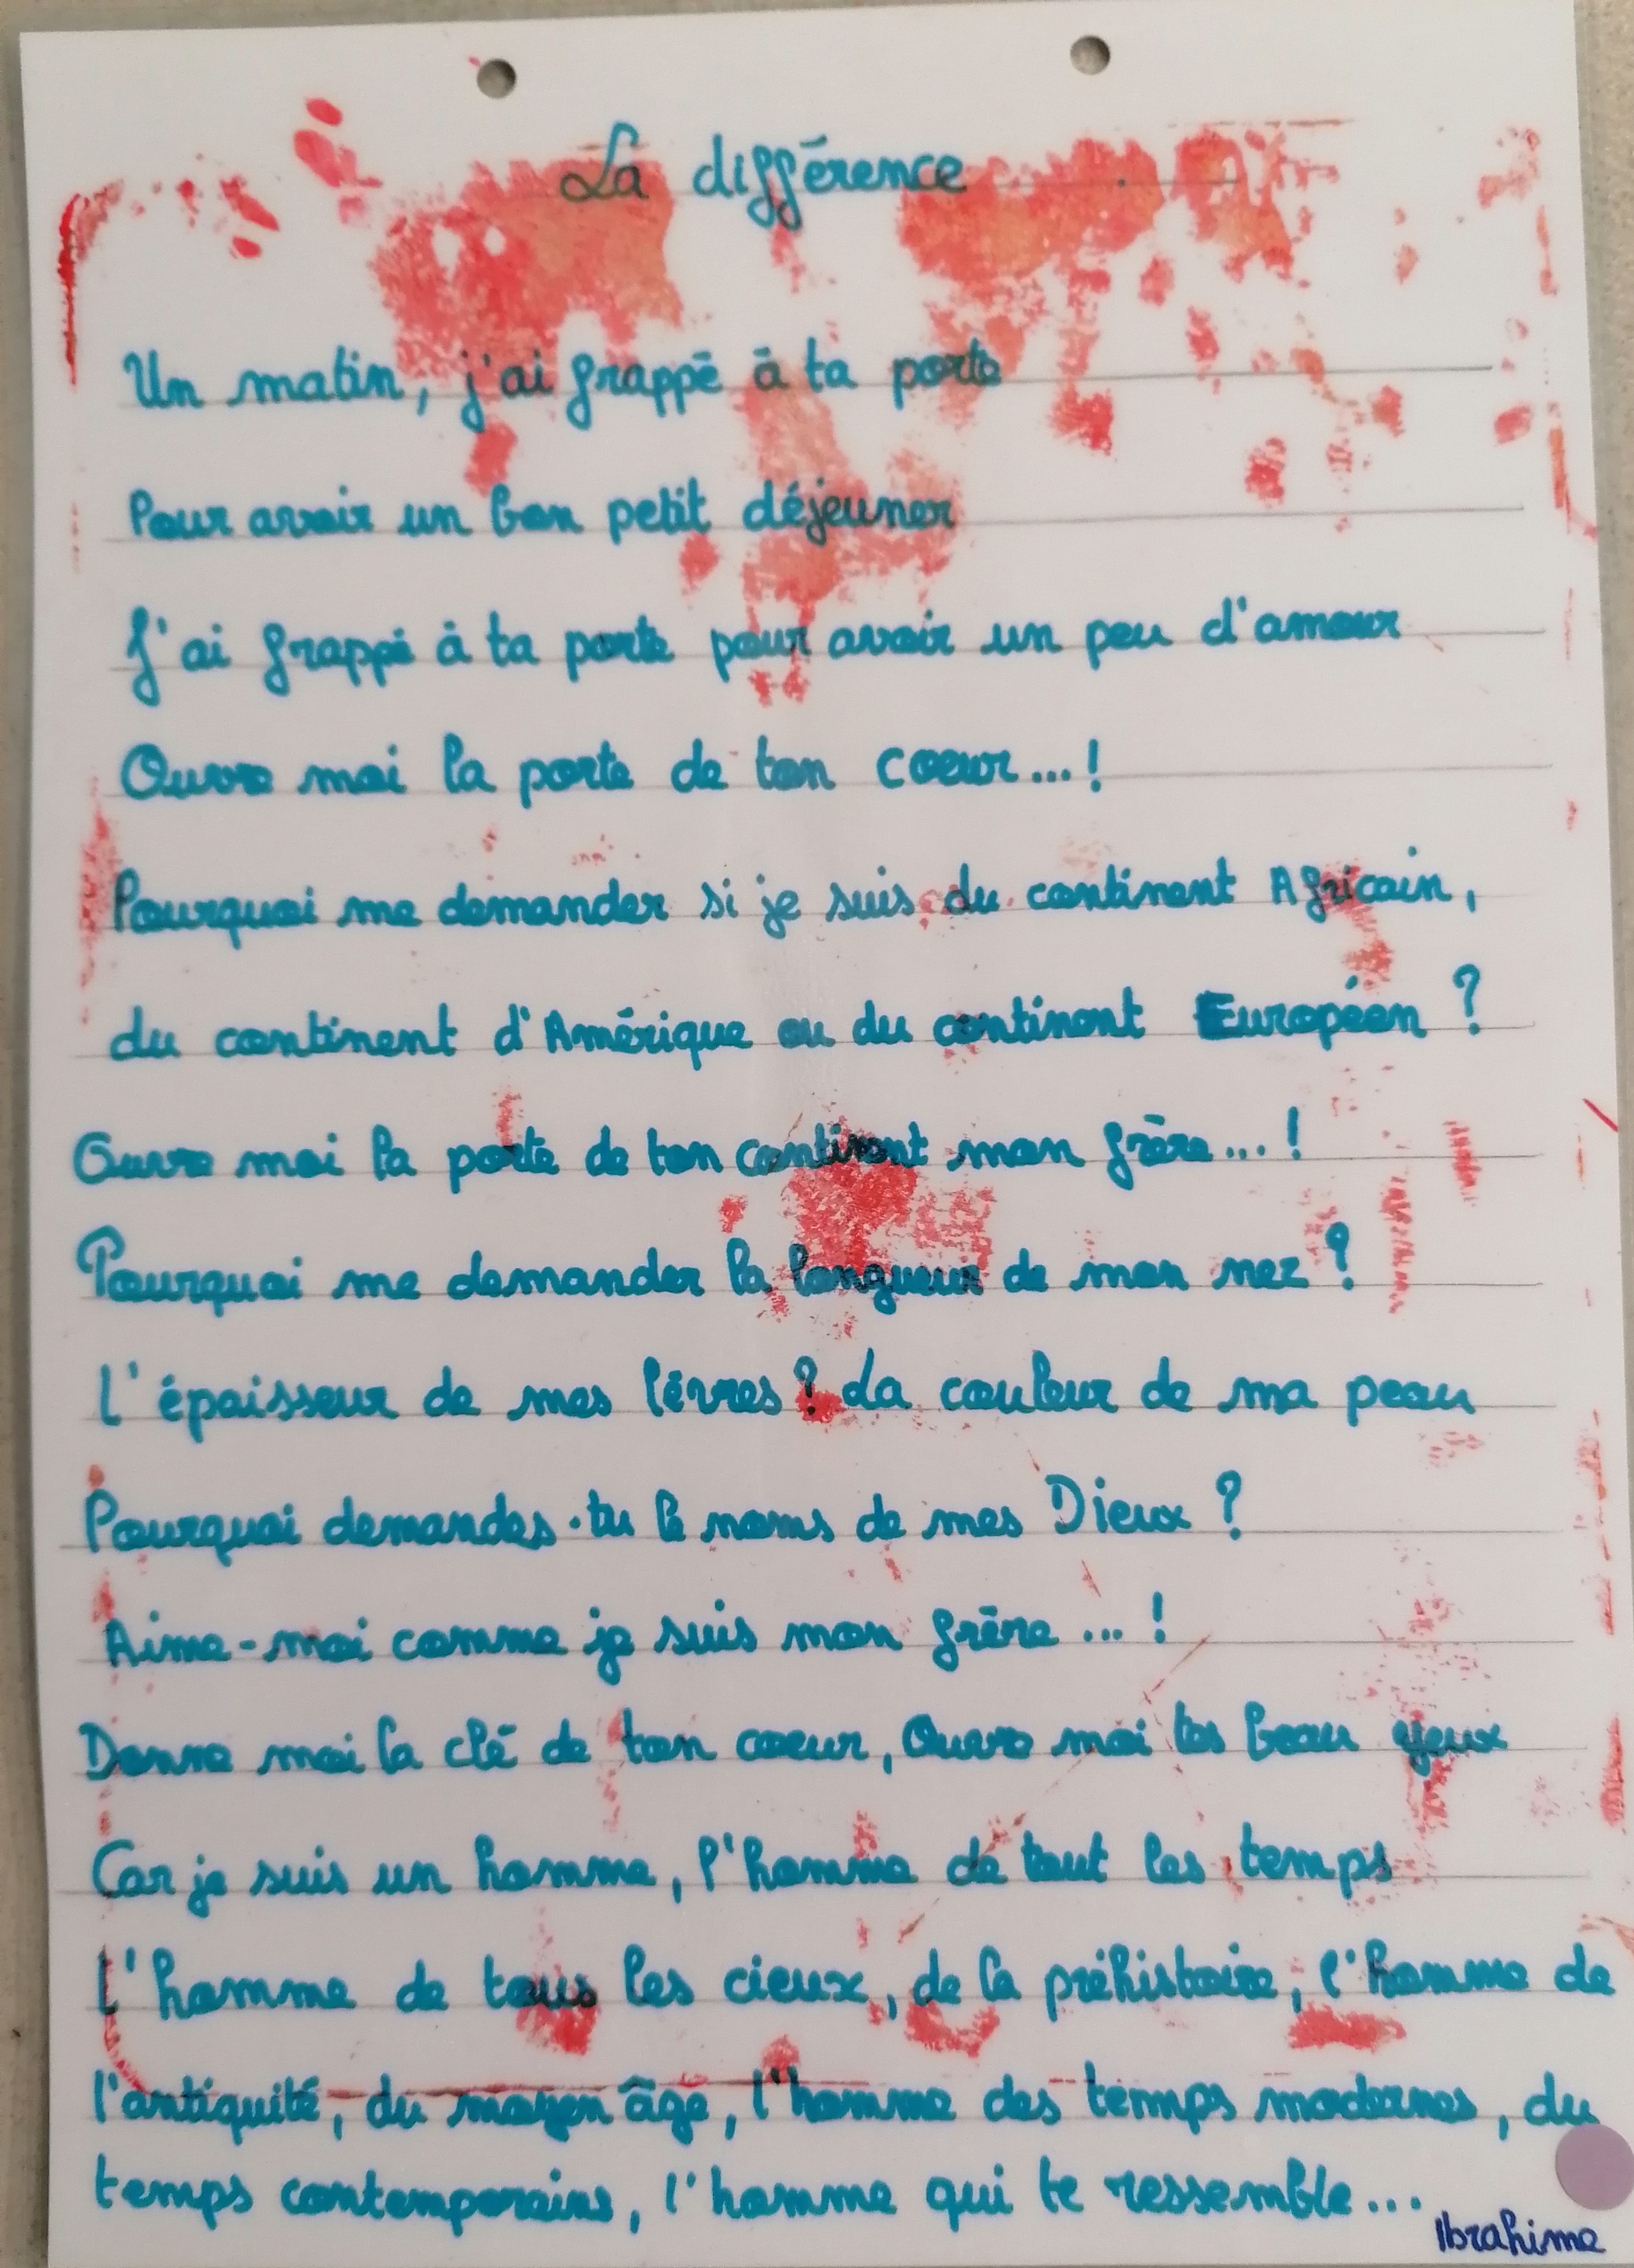 La différence
Un matin, j'ai frappé à ta porte
Pour avoir un bon petit déjeuner
J'ai frappé à ta porte pour avoir un peu d'amour
Ouvre moi la porte de ton coeur...!
Pourquoi me demander si je suis du continent Africain,
du continent d'Amérique ou du continent Européen ?
Ouvre moi la porte de ton continent mon frère...!
Pourquoi me demander la longueur de mon nez ?
L'épaisseur de mes lèvres ? La couleur de ma peau
Pourquoi demandes-tu le noms de mes Dieux ?
Aime-moi comme je suis mon frère...!
Donne moi la clé de ton coeur, Ouvre moi tes beau yeux
Car je suis un homme, l'homme de tout les temps
L'homme de tous les cieux, de la préhistoire, l'homme de
l'antiquité, du moyen âge, l'homme des temps modernes, du
temps contemporains, l'homme qui te ressemble...
Ibrahima